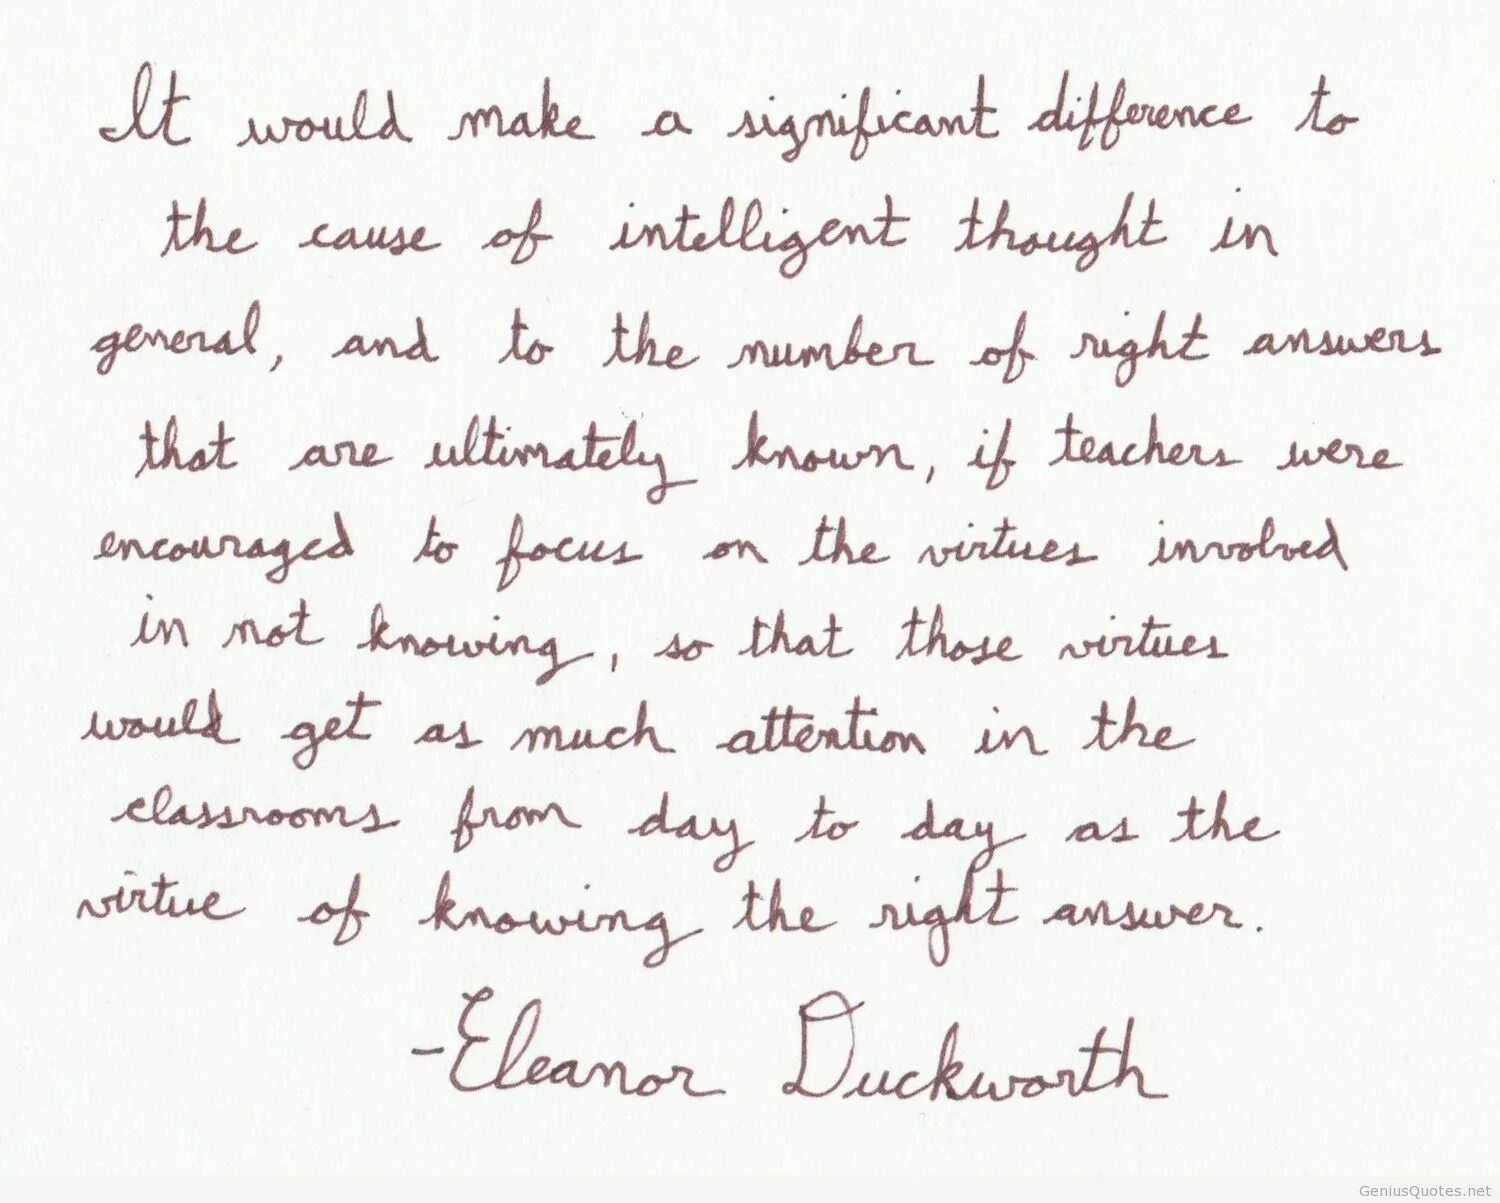 It would make a significant difference to
the cause of intelligent thought in
general, and to the number of right answers
that are ultimately known, if teachers were
encouraged to focus on the virtues involved
in not knowing, so that those virtues
would get as much attention in the
classrooms from day to day as the
virtue of knowing the right answer.
-Eleanor Duckworth
GeniusQuotes.net